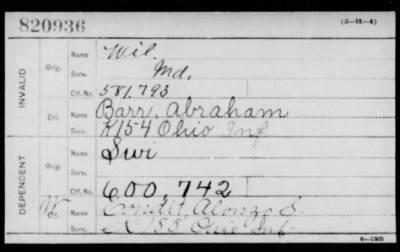 820936 (3-H-4)
INVALID
Orig. Name Wil.
Serv. Md.
Ctf. No. 581,793
Ctf. Name Barr, Abraham
Serv. K 154 Ohio Inf
DEPENDENT
Orig. Name Swi
Serv.
Ctf. No. 600,742
W Ctf. Name Alonzo S.
Serv. K 155 Ohio Inf.
6—1503